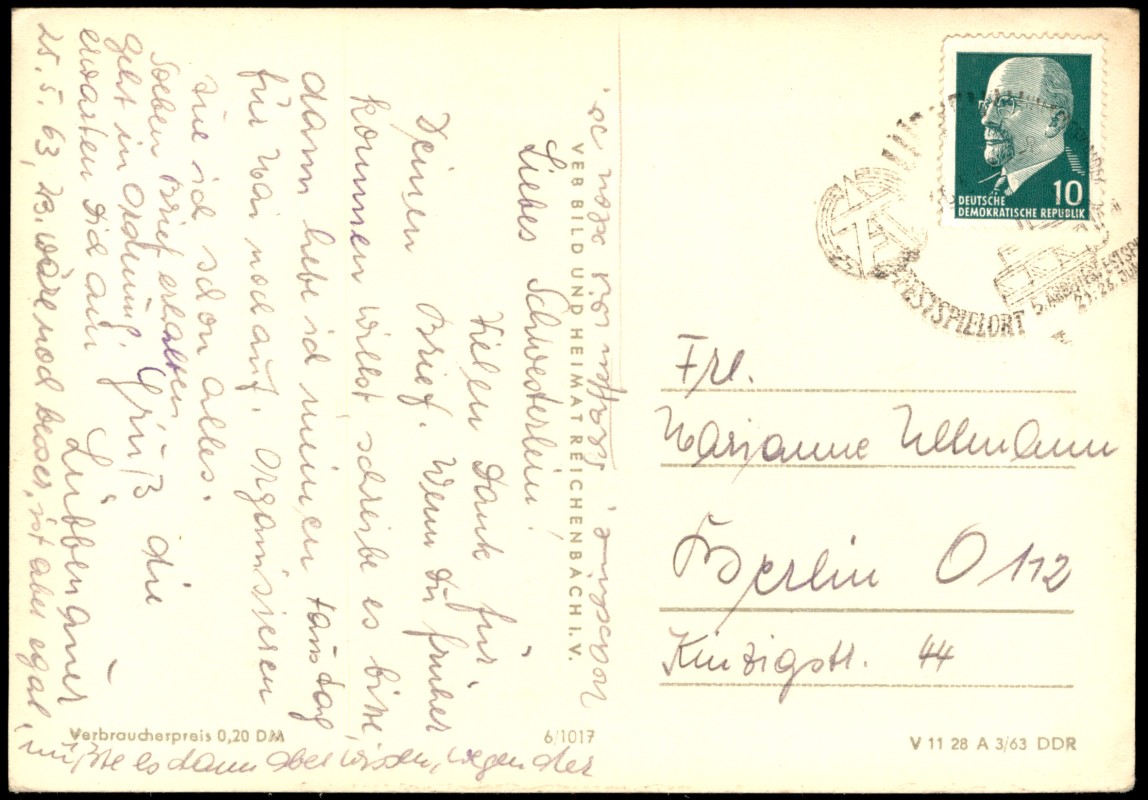 Liebes Schwesterlein!
Vielen Dank für
Deinen Brief. Wenn Du früher
kommen willst schreibe es bitte,
dann hebe ich meinen tag
für Mai noch auf. Organisieren
tue ich schon alles.
Soeben Brief erhalten,
geht in Ordnung, Grüß die
erwarten Dich am Lübbenauer
25.5.63, 23. wäre noch besser, ist aber egal,
müßte es dann aber wissen, wegen der
VEB BILD UND HEIMAT REICHENBACH I. V.
Verbraucherpreis 0,20 DM
6/1017
V 11 28 A 3/63 DDR
10
DEUTSCHE
DEMOKRATISCHE REPUBLIK
FESTSPIELORT
5. ARBEITERFESTSPIELE
Frl.
Marianne Ullmann
Berlin O 112
Kinzigstr. 44